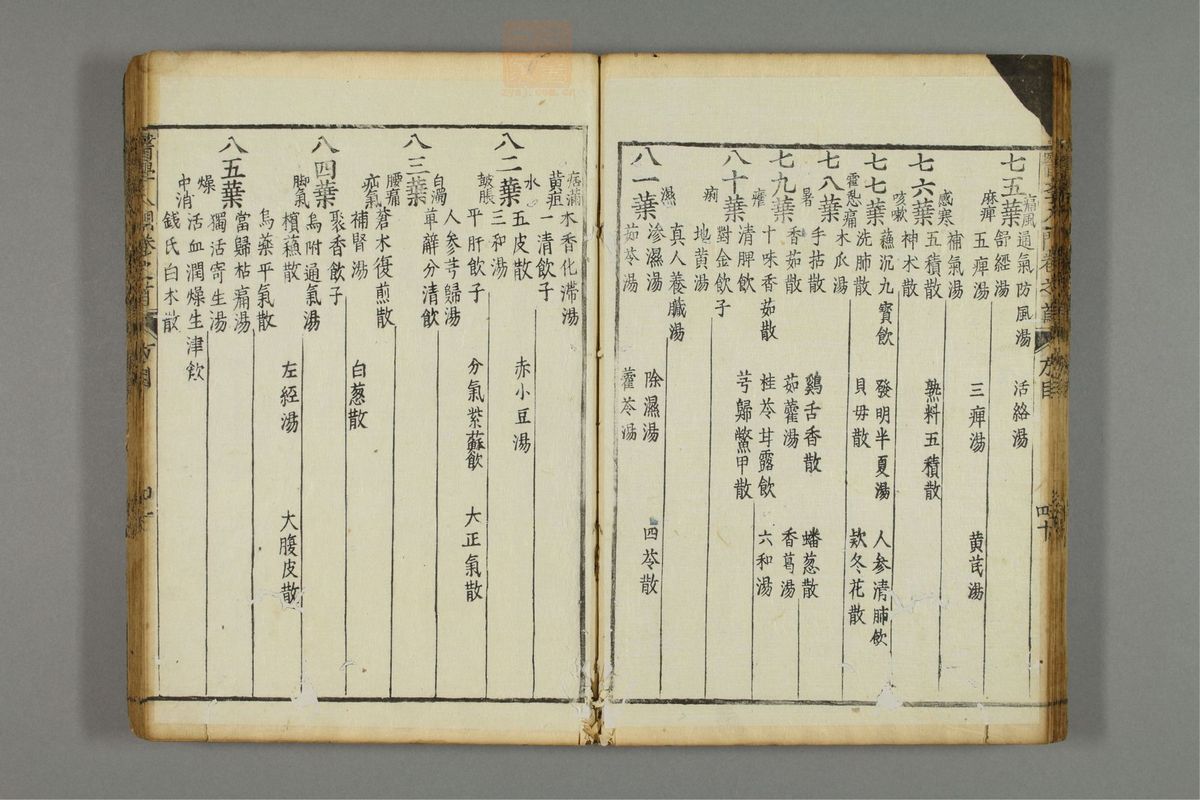 七五葉
痛風 通氣防風湯 活絡湯
舒經湯
麻痺 五痺湯 三痺湯 黄芪湯
補氣湯
七六葉
感寒 五積散 熟料五積散
神术散
咳嗽 蘓沉九寳飲 發明半夏湯 人參清肺飲
七七葉
洗肺散 貝母散 欵冬花散
霍亂痛 木瓜湯
七八葉
手拈散 鷄舌香散 蟠葱散
暑 香茹散 茹藿湯 香葛湯
七九葉
十味香茹散 桂苓甘露飲 六和湯
瘧 清脾飲 芎歸鱉甲散
八十葉
對金飲子
痢 地黄湯
真人養臟湯
濕 滲濕湯 除濕湯 四苓散
八一葉
茹苓湯 藿苓湯
痞滿 木香化滯湯
黄疸 一清飲子
水 五皮散 赤小豆湯
八二葉
三和湯
皷脹 平肝飲子 分氣紫蘓飲 大正氣散
人參芎歸湯
白濁 萆薢分清飲
八三葉
腰痛 蒼术復煎散
補腎湯 白葱散
疝氣 聚香飲子
八四葉
烏附通氣湯
脚氣 檳蘓散 左經湯 大腹皮散
烏藥平氣散
當歸拈痛湯
八五葉
獨活寄生湯
燥 活血潤燥生津飲
中消 錢氏白术散
四十